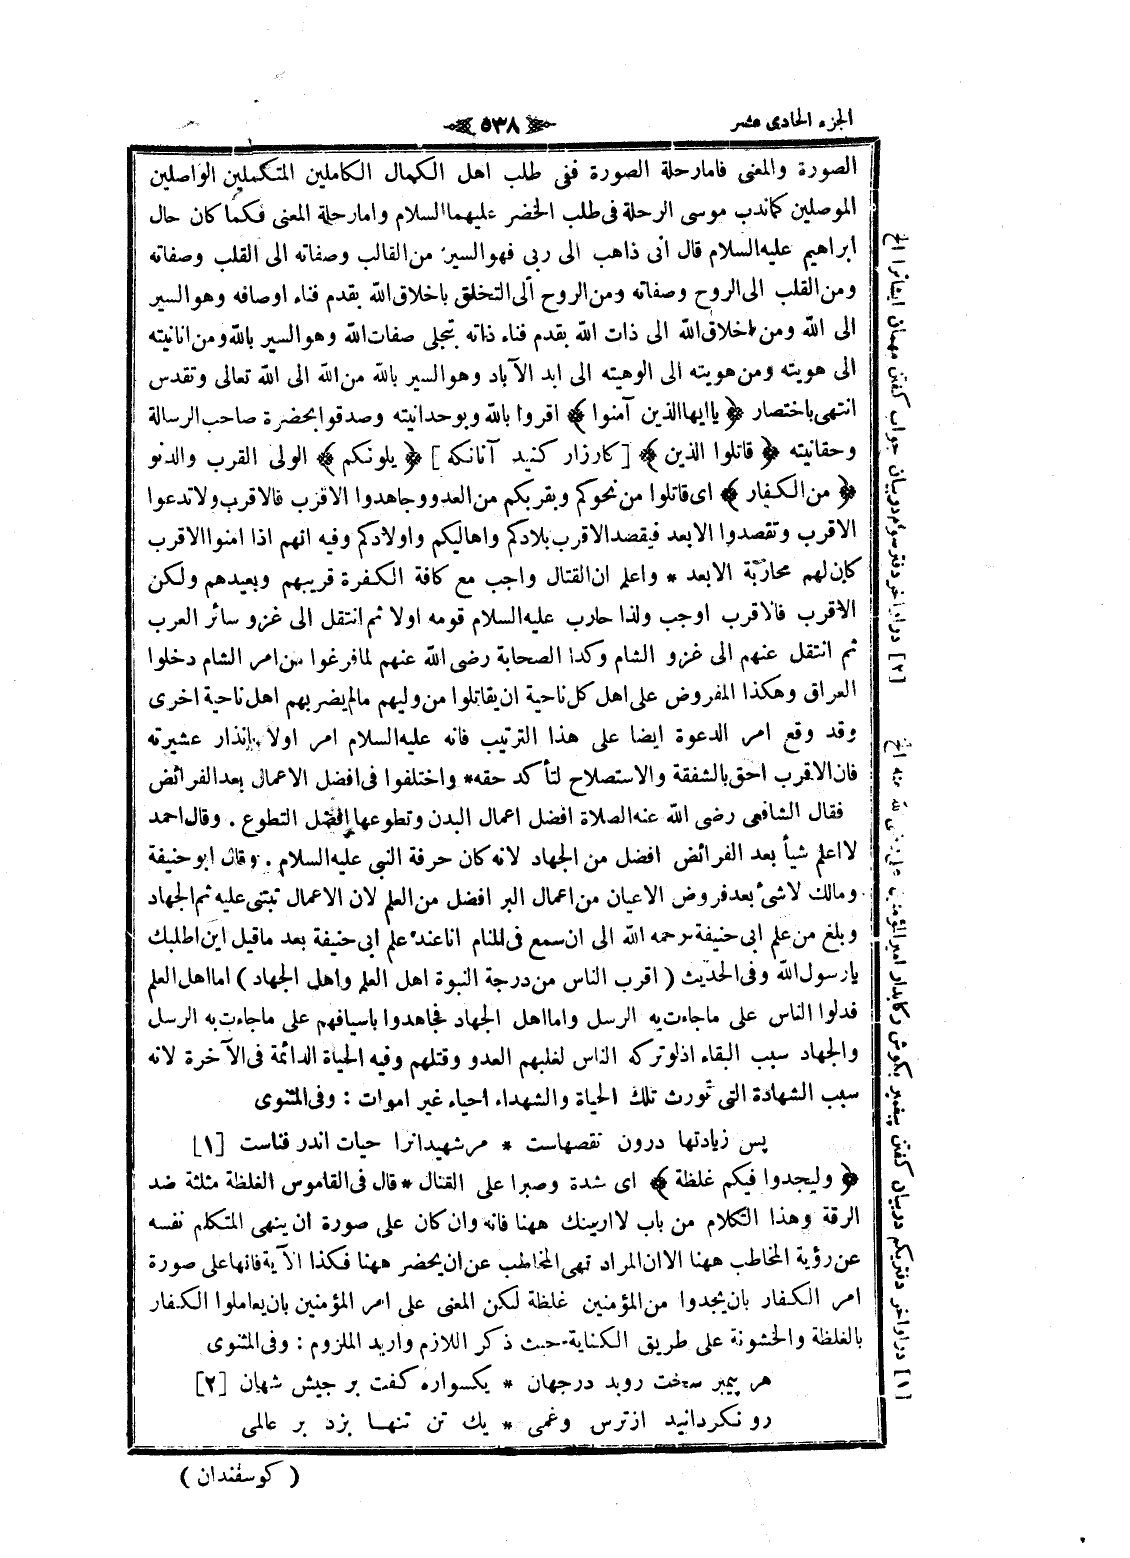 الجزء الحادى عشر
٥٣٨
الصورة والمعنى فامارحلة الصورة ففى طلب اهل الكمال الكاملين المتكملين الواصلين
الموصلين كماندب موسى الرحلة فى طلب الخضر عليهما السلام وامارحلة المعنى فكما كان حال
ابراهيم عليه السلام قال انى ذاهب الى ربى فهو السير من القالب وصفاته الى القلب وصفاته
ومن القلب الى الروح وصفاته ومن الروح الى التخلق باخلاق الله بقدم فناء اوصافه وهو السير
الى الله ومن اخلاق الله الى ذات الله بقدم فناء ذاته بتجلى صفات الله وهو السير بالله ومن انانيته
الى هويته ومن هويته الى الوهيته الى ابد الآباد وهو السير بالله من الله الى الله تعالى وتقدس
انتهى باختصار ﴿ ياايها الذين آمنوا ﴾ اقروا بالله وبوحدانيته وصدقوا بحضرة صاحب الرسالة
وحقانيته ﴿ قاتلوا الذين ﴾ [ كارزار كنيد آنانكه ] ﴿ يلونكم ﴾ الولى القرب والدنو
﴿ من الكفار ﴾ اى قاتلوا من نحوكم وبقربكم من العدو وجاهدوا الاقرب فالاقرب ولاتدعوا
الاقرب وتقصدوا الابعد فيقصد الاقرب بلادكم واهاليكم واولادكم وفيه انهم اذا امنوا الاقرب
كان لهم محاربة الابعد * واعلم ان القتال واجب مع كافة الكفرة قريبهم وبعيدهم ولكن
الاقرب فالاقرب اوجب ولذا حارب عليه السلام قومه اولا ثم انتقل الى غزو سائر العرب
ثم انتقل عنهم الى غزو الشام وكذا الصحابة رضى الله عنهم لما فرغوا من امر الشام دخلوا
العراق وهكذا المفروض على اهل كل ناحية ان يقاتلوا من وليهم مالم يضر بهم اهل ناحية اخرى
وقد وقع امر الدعوة ايضا على هذا الترتيب فانه عليه السلام امر اولا بانذار عشيرته
فان الاقرب احق بالشفقة والاستصلاح لتأكد حقه * واختلفوا فى افضل الاعمال بعد الفرائض
فقال الشافعى رضى الله عنه الصلاة افضل اعمال البدن وتطوعها افضل التطوع . وقال احمد
لااعلم شيأ بعد الفرائض افضل من الجهاد لانه كان حرفة النبى عليه السلام . وقال ابو حنيفة
ومالك لاشئ بعد فروض الاعيان من اعمال البر افضل من العلم لان الاعمال تبتنى عليه ثم الجهاد
وبلغ من علم ابى حنيفة رحمه الله الى ان سمع فى المنام انا عند علم ابى حنيفة بعد ماقيل اين اطلبك
يارسول الله وفى الحديث ( اقرب الناس من درجة النبوة اهل العلم واهل الجهاد ) اما اهل العلم
فدلوا الناس على ماجاءت به الرسل واما اهل الجهاد فجاهدوا باسيافهم على ماجاءت به الرسل
والجهاد سبب البقاء اذلو تركه الناس لغلبهم العدو وقتلهم وفيه الحياة الدائمة فى الآخرة لانه
سبب الشهادة التى تورث تلك الحياة والشهداء احياء غير اموات : وفى المثنوى
پس زيادتها درون نقصهاست * مر شهيدانرا حيات اندر فناست [١]
﴿ وليجدوا فيكم غلظة ﴾ اى شدة وصبرا على القتال * قال فى القاموس الغلظة مثلثة ضد
الرقة وهذا الكلام من باب لااربنك ههنا فانه وان كان على صورة ان ينهى المتكلم نفسه
عن رؤية المخاطب ههنا الا ان المراد نهى المخاطب عن ان يحضر ههنا فكذا الآية فانها على صورة
امر الكفار بان يجدوا من المؤمنين غلظة لكن المعنى على امر المؤمنين بان يعاملوا الكفار
بالغلظة والخشونة على طريق الكناية حيث ذكر اللازم واريد الملزوم : وفى المثنوى
هر پيمبر سخت روبد درجهان * يكسواره كفت بر جيش شهان [٢]
رو نكردانيد از ترس وغمى * يك تن تنهـا بزد بر عالمى
( كوسفندان )
[١] دراواخر دفتريكم دربيان كفتن پيغمبر بكوش ركابدار امير المؤمنين على رضى الله عنه الخ
[٢] دراواخر دفتر سوم دربيان جواب كفتن مهمان ايشانرا الخ